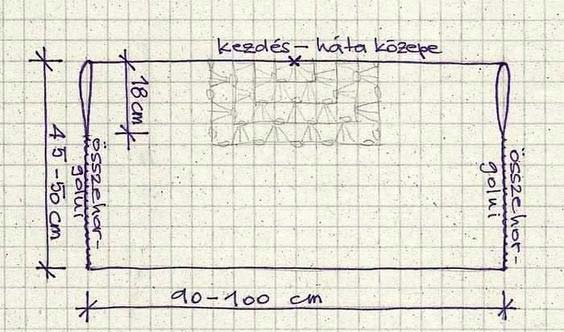 kezdés – háta közepe
18 cm
45-50 cm
összehor-
golni
összehor-
golni
90-100 cm